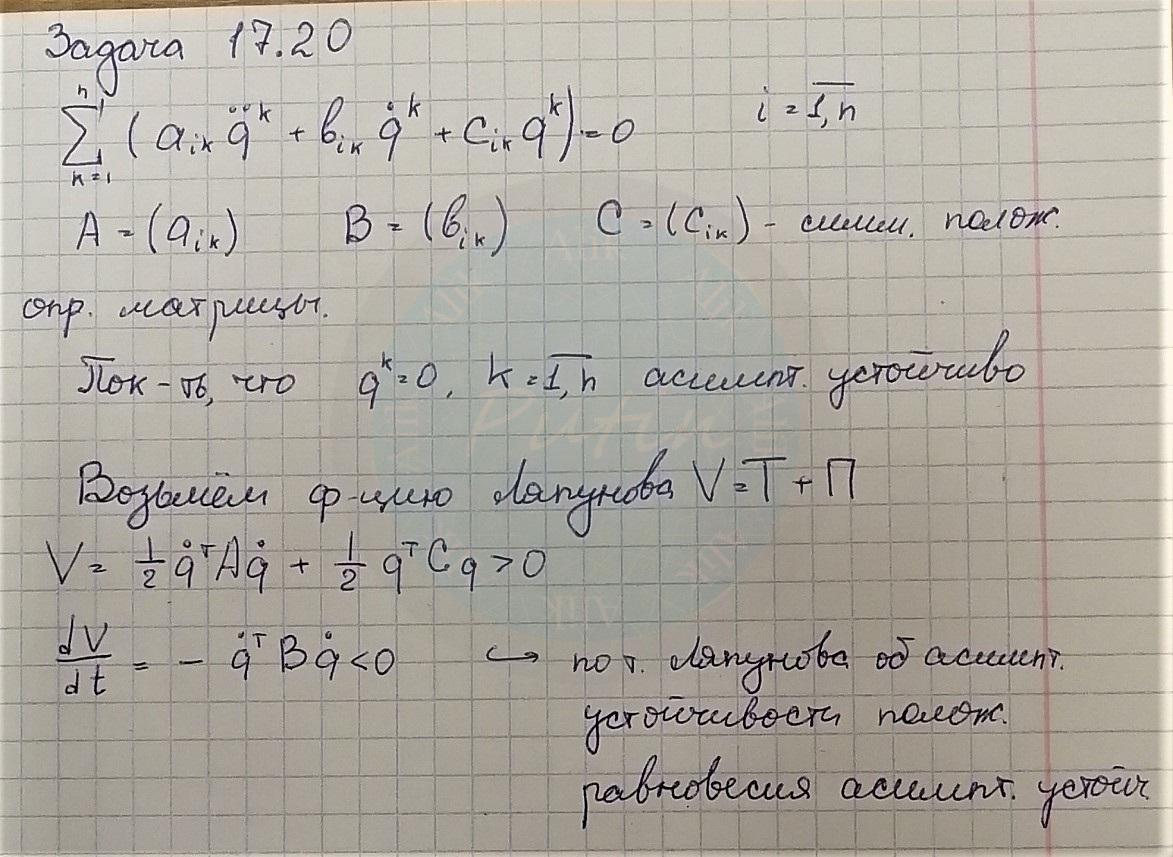 Задача 17.20
∑ₖ₌₁ⁿ (aᵢₖ q̈ᵏ + bᵢₖ q̇ᵏ + cᵢₖ qᵏ) = 0    i = 1,n̅
A = (aᵢₖ)    B = (bᵢₖ)    C = (cᵢₖ) - симм. полож.
опр. матрицы.
Пок-ть, что qᵏ=0, k = 1,n̅ асимпт. устойчиво
Возьмём ф-цию Ляпунова V = T + П
V = 1/2 q̇ᵀAq̇ + 1/2 qᵀCq > 0
dV/dt = - q̇ᵀBq̇ < 0 ↪ по т. Ляпунова об асимпт.
устойчивости полож.
равновесия асимпт. устойч.
Putin
АПК